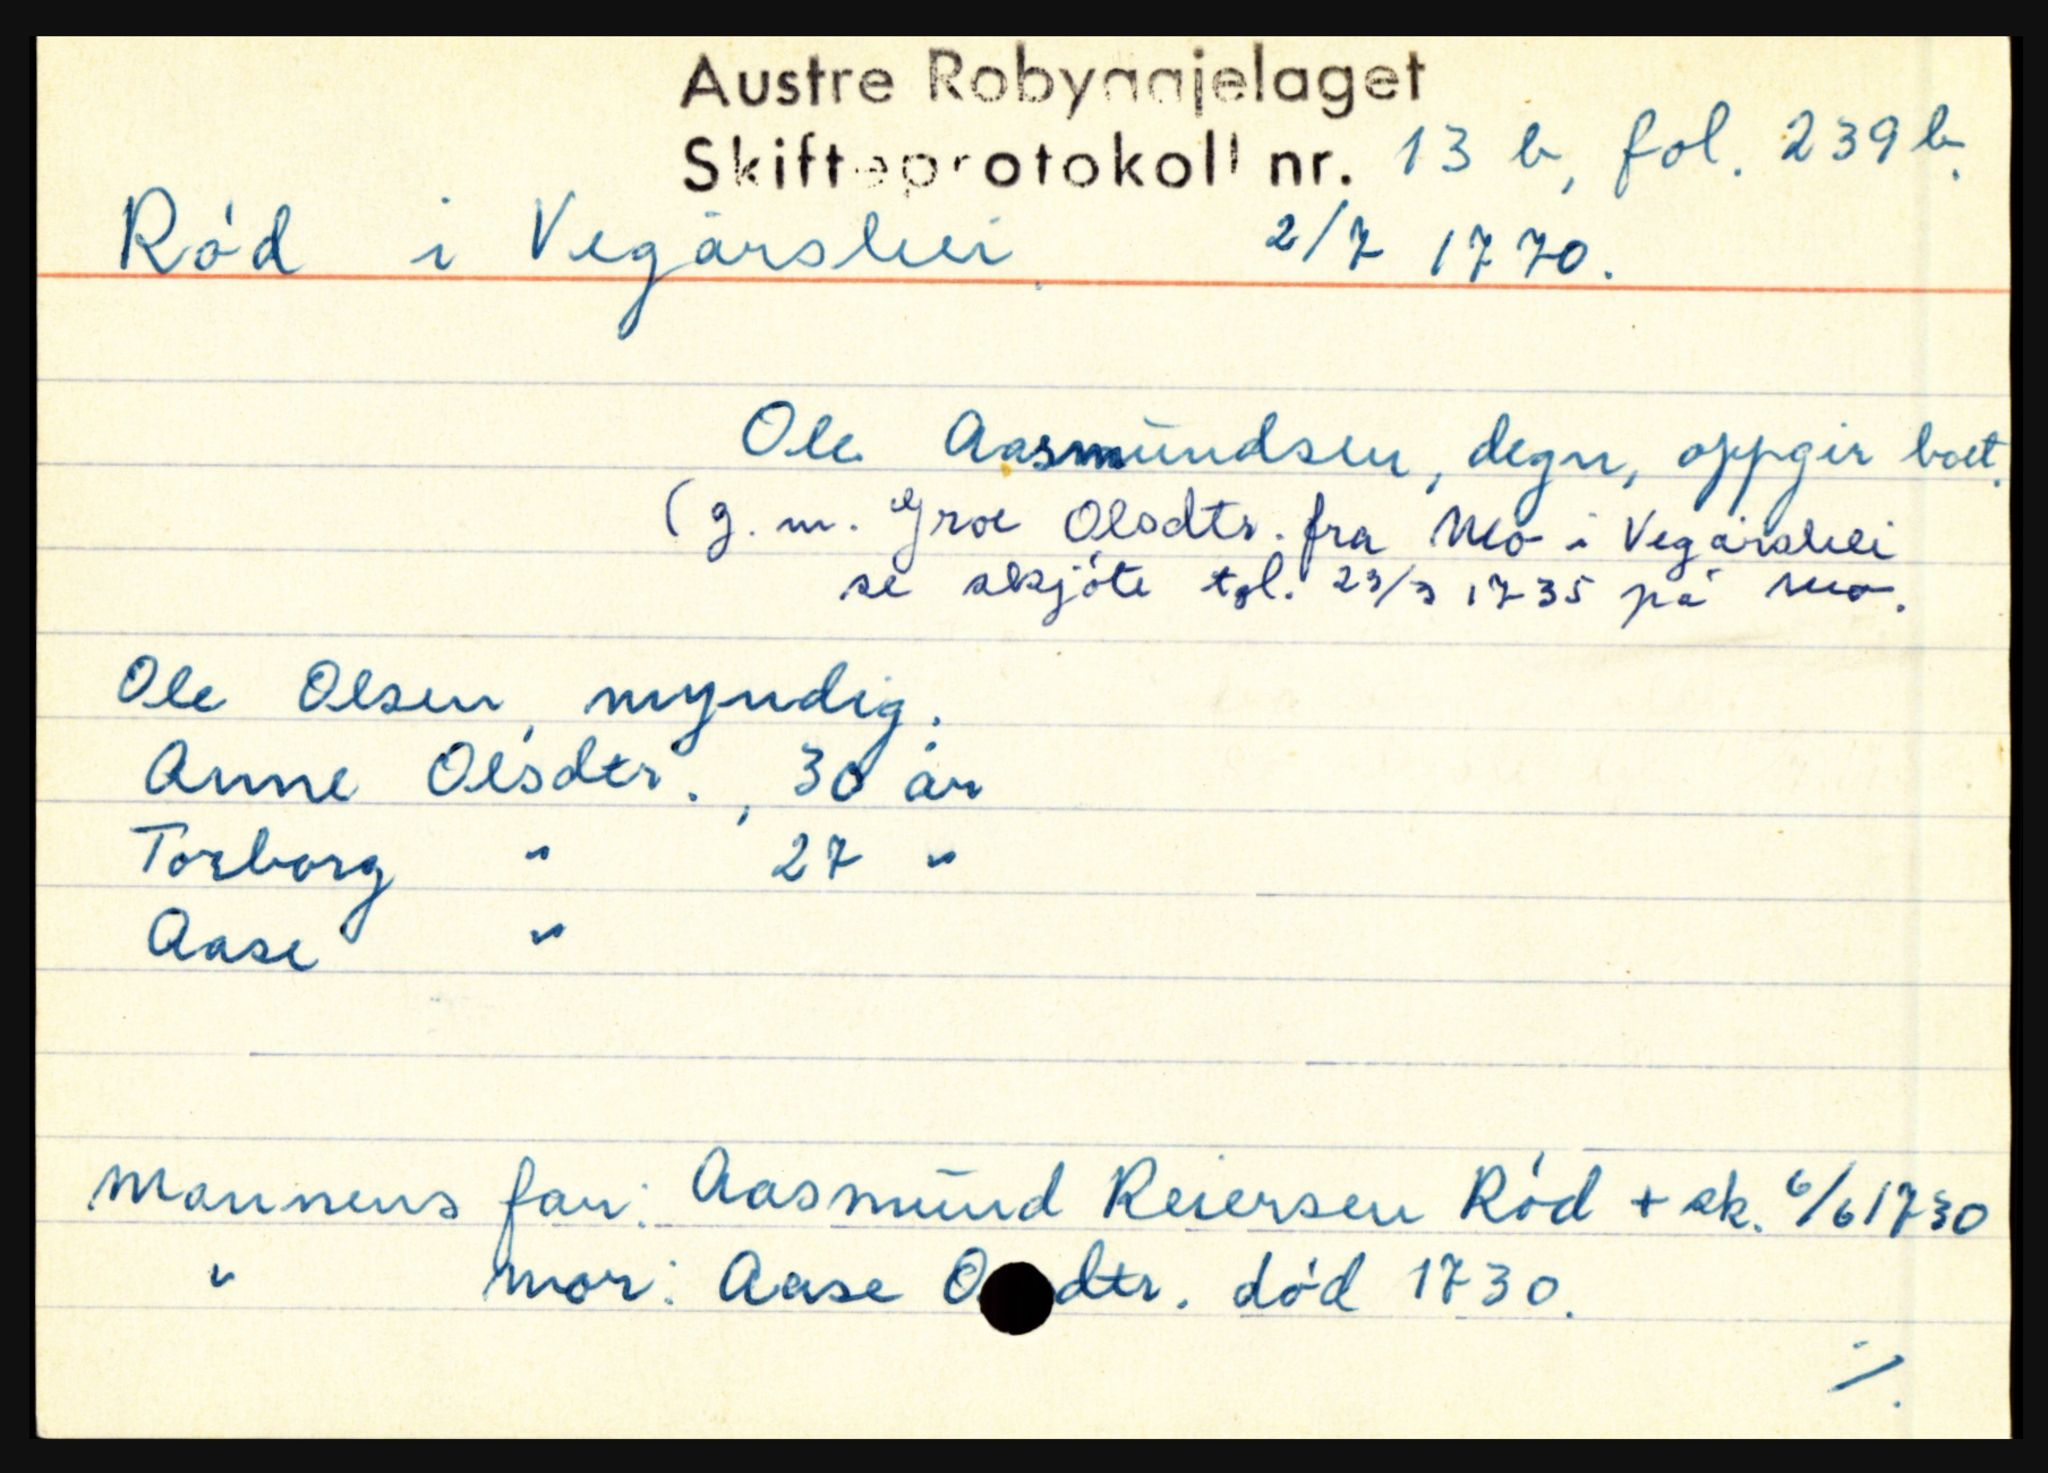 Austre Robyggjelaget
Skifteprotokoll nr. 13 b, fol. 239 b.
Rød i Vegårshei. 2/7 1770.
Ole Aasmundsen, degn, oppgir boet.
(g. m. Groe Olsdtr. fra Mo i Vegårshei
se skjøte tgl. 23/3 1735 på Mo.
Ole Olsen, myndig.
Anne Olsdtr., 30 år
Torborg " 27 "
Aase "
Mannens far: Aasmund Reiersen Rød + sk. 6/6 1730
" mor: Aase O dtr. død 1730.
./.